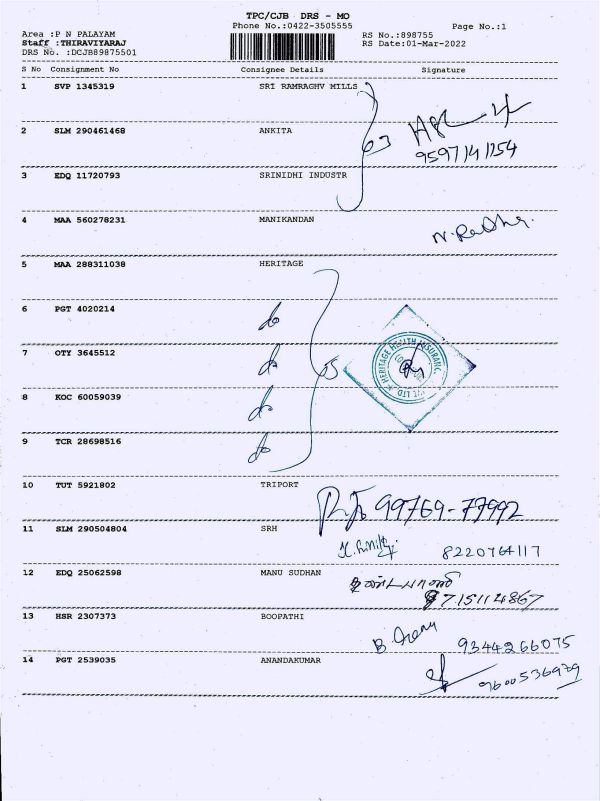 TPC/CJB DRS - MO
Phone No.:0422-3505555 Page No.:1
Area :P N PALAYAM RS No.:898755
Staff :THIRAVIYARAJ RS Date:01-Mar-2022
DRS No. :DCJB89875501
S No Consignment No Consignee Details Signature
1 SVP 1345319 SRI RAMRAGHV MILLS
2 SLM 290461468 ANKITA 03
9597141154
3 EDQ 11720793 SRINIDHI INDUSTR
4 MAA 560278231 MANIKANDAN
N. Radha.
5 MAA 288311038 HERITAGE
6 PGT 4020214 do
7 OTY 3645512 do 05
HERITAGE HEALTH INSURANC PVT LTD
8 KOC 60059039 do
9 TCR 28698516 do
10 TUT 5921802 TRIPORT
99769-77992
11 SLM 290504804 SRH
8220764117
12 EDQ 25062598 MANU SUDHAN
9715114867
13 HSR 2307373 BOOPATHI
9344266075
14 PGT 2539035 ANANDAKUMAR
9600536979